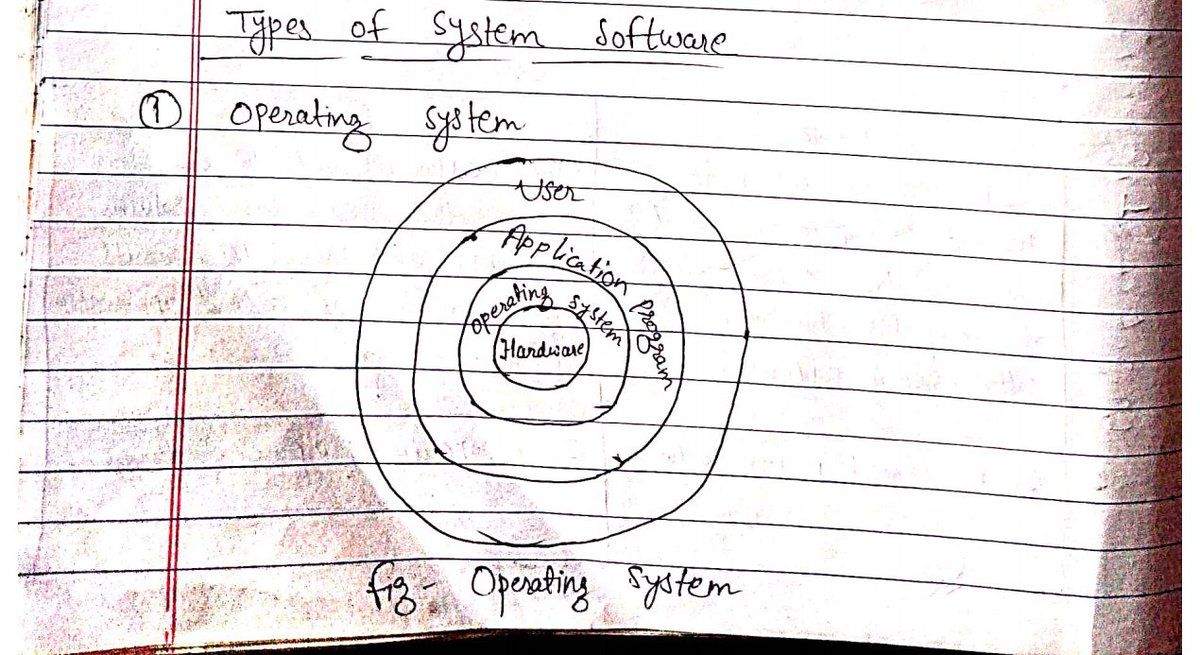 Types of System Software
1 Operating System
User
Application Program
Operating System
Hardware
fig- Operating System